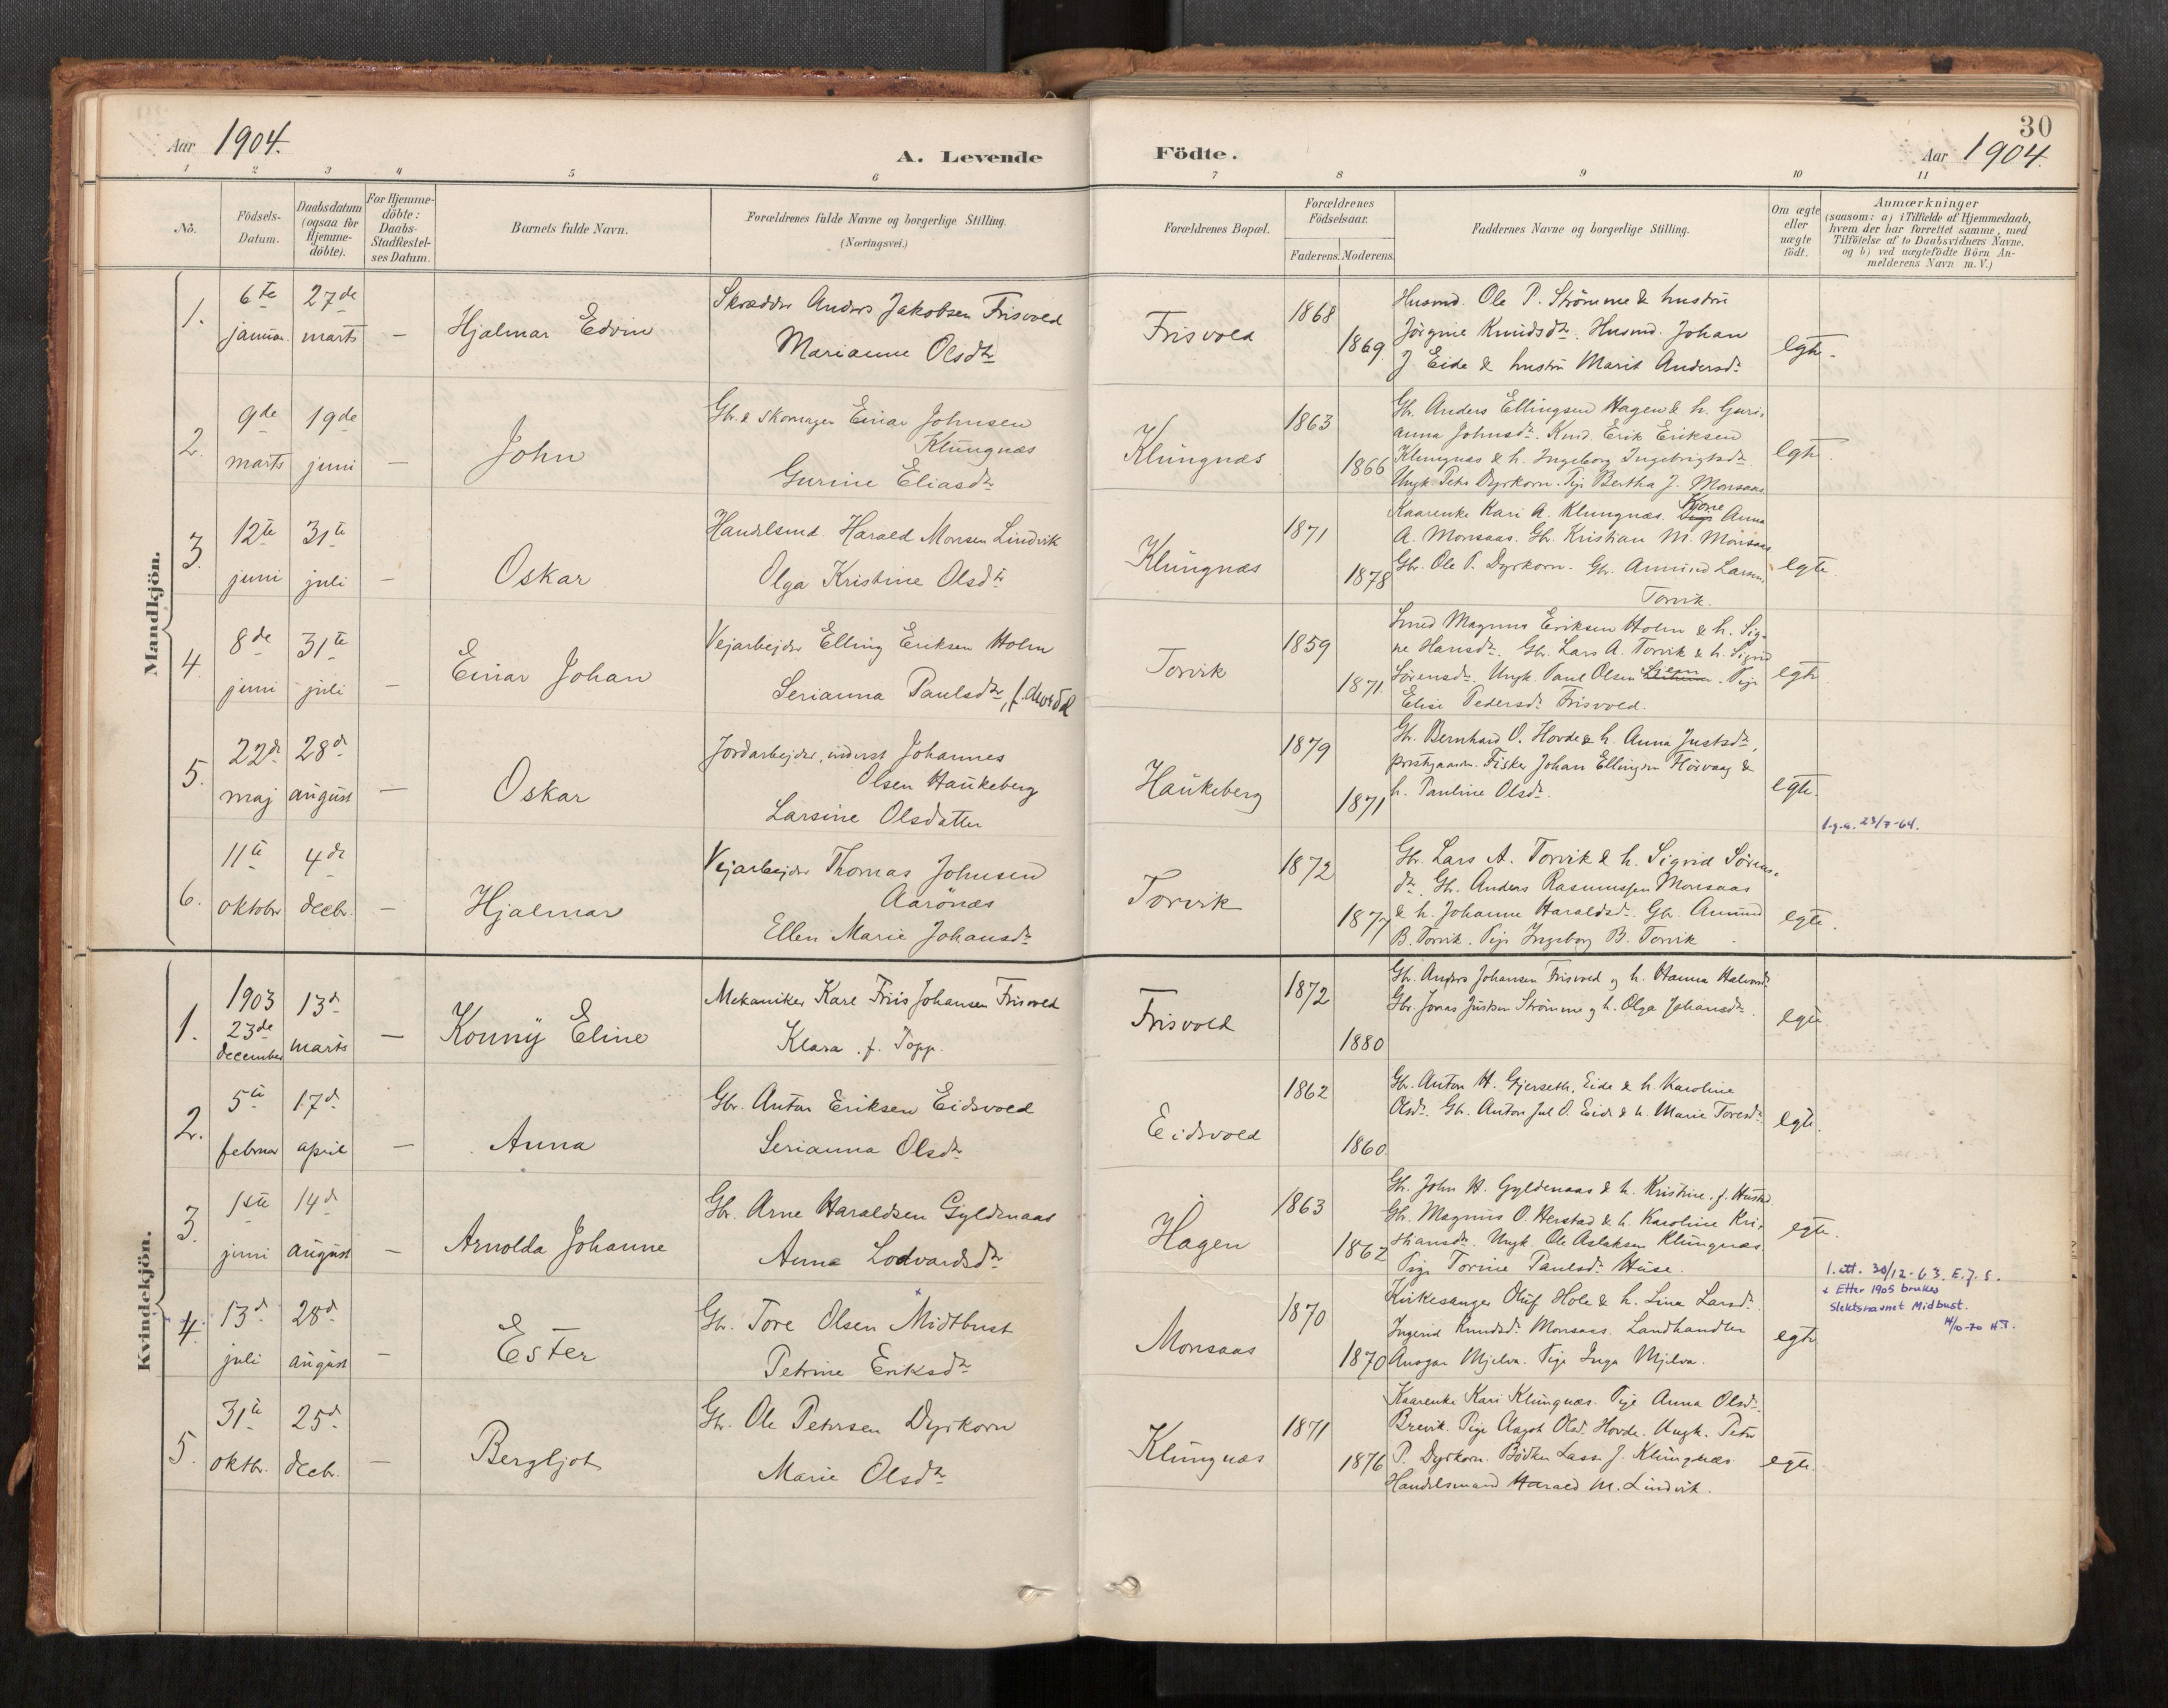 30
Aar 1904.
A. Levende Födte.
Aar 1904.
1 2 3 4 5 6 7 8 9 10 11
No.
Födsels-Datum.
Daabsdatum (ogsaa for Hjemme-döbte).
For Hjemme-döbte: Daabs-Stadfæstel-ses Datum.
Barnets fulde Navn.
Forældrenes fulde Navne og borgerlige Stilling.
(Næringsvei.)
Forældrenes Bopæl.
Forældrenes Födselsaar.
Faderens. Moderens.
Faddernes Navne og borgerlige Stilling.
Om ægte eller uægte födt.
Anmærkninger
(saasom: a) i Tilfælde af Hjemmedaab,
hvem der har forrettet samme, med
Tilföielse af to Daabsvidners Navne.
og b) ved uægtefödte Börn An-
melderens Navn m. V.)
Mandkjön.
1.
6te januar
27de marts
—
Hjalmar Edvin
Skrædder Anders Jakobsen Frisvold
Marianne Olsdtr
Frisvold
1868
1869
Husmd. Ole P. Strömme & hustru
Jörgine Knudsdtr. Husmd. Johan
J. Eide & hustru Marit Andersdr
egte.
2.
9de marts
19de juni
—
John
Gbr. & skomager Einar Johnsen
Klungnæs
Gurine Eliasdtr
Klungnæs
1863
1866
Gbr. Anders Ellingsen Hagen & h. Guri-
anna Johnsdr. Kmd. Erik Eriksen
Klungnæs & h. Ingeborg Ingebrigtsdr
Ungk. Peter Dyrkorn. Pige Bertha J. Monsaas
egte.
3.
12te juni
31te juli
—
Oskar
Handelsmd. Harald Monsen Lindvik
Olga Kristine Olsdtr
Klungnæs
1871
1878
Kaarenke Kari A. Klungnæs. Kone Anna
A. Monsaas. Gbr. Kristian M. Monsaas
Gbr. Ole P. Dyrkorn. Gbr. Amund Larsen
Torvik.
egte.
4.
8de juni
31te juli
—
Einar Johan
Vejarbejder Elling Eriksen Holm
Serianna Paulsdtr,
Torvik
1859
1871
Smed Magnus Eriksen Holm & h. Sig-
ne Hansdr. Gbr. Lars A. Torvik & h. Sigrid
Sörensdr. Ungk. Paul Olsen. Pige
Elise Pedersdr. Frisvold.
egte.
5.
22de maj
28de august
—
Oskar
Jordarbejder, inderst Johannes
Olsen Haukeberg
Larsine Olsdatter
Haukeberg
1879
1871
Gbr. Bernhard O. Hovde & h. Anna Justsdr,
prestgaarden. Fisker Johan Ellingsen Hörvaag &
h. Pauline Olsdr.
egte.
23/7-64.
6.
11te oktober
4de decbr.
—
Hjalmar
Vejarbejder Thomas Johnsen
Aarönæs
Ellen Marie Johansdr
Torvik
1872
1877
Gbr. Lars A. Torvik & h. Sigrid Sörens-
dr. Gbr. Anders Rasmussen Monsaas
& h. Johanne Haraldsdr. Gbr. Amund
B. Torvik. Pige Ingeborg B. Torvik
egte.
Kvindekjön.
1.
1903
23de december
13de marts
—
Konny Eline
Mekaniker Karl Friis Johansen Frisvold
Klara f. Topp.
Frisvold
1872
1880
Gbr. Anders Johansen Frisvold og h. Hanna Halvorsdr
Gbr. Jonas Justsen Strömme og h. Olga Johansdr.
egte.
2.
5te februar
17de april
—
Anna
Gbr. Anton Eriksen Eidsvold
Serianna Olsdr
Eidsvold
1862
1860
Gbr. Anton H. Gjerseth, Eide & h. Karoline
Olsdr. Gbr. Anton Jul O. Eide & h. Marie Toresdr
egte.
3.
1ste juni
14de august
—
Arnolda Johanne
Gbr. Arne Haraldsen Gyldenaas
Anna Lodvardsdr
Hagen
1863
1862
Gbr. John H. Gyldenaas & h. Kristine, f. Hustad
Gbr. Magnus O. Herstad & h. Karoline Kri-
stiansdr. Ungk. Ole Aslaksen Klungnæs
Pige Torine Paulsdr. Huse.
egte.
4.
13de juli
28de august
—
Ester
Gbr. Tore Olsen Midtbust
Petrine Eriksdr
Monsaas
1870
1870
Kirkesanger Oluf Hole & h. Lina Larsdr.
Ingerid Knudsdr. Monsaas. Landhandler
Ansgar Mjelva. Pige Inga Mjelva.
egte
1. att. 30/12-63. E.J.S.
x Etter 1905 brukes
slektsnavnet Midbust.
14/10-70 H.T.
5.
31te oktbr.
25de decbr.
—
Bergljot
Gbr. Ole Petersen Dyrkorn
Marie Olsdr
Klungnæs
1871
1876
Kaarenke Kari Klungnæs. Pige Anna Olsdr.
Brevik. Pige Aagot Olsd. Hovde. Ungk. Peter
P. Dyrkorn. Bödker Lasse J. Klungnæs
Handelsmand Harald M. Lindvik.
egte.